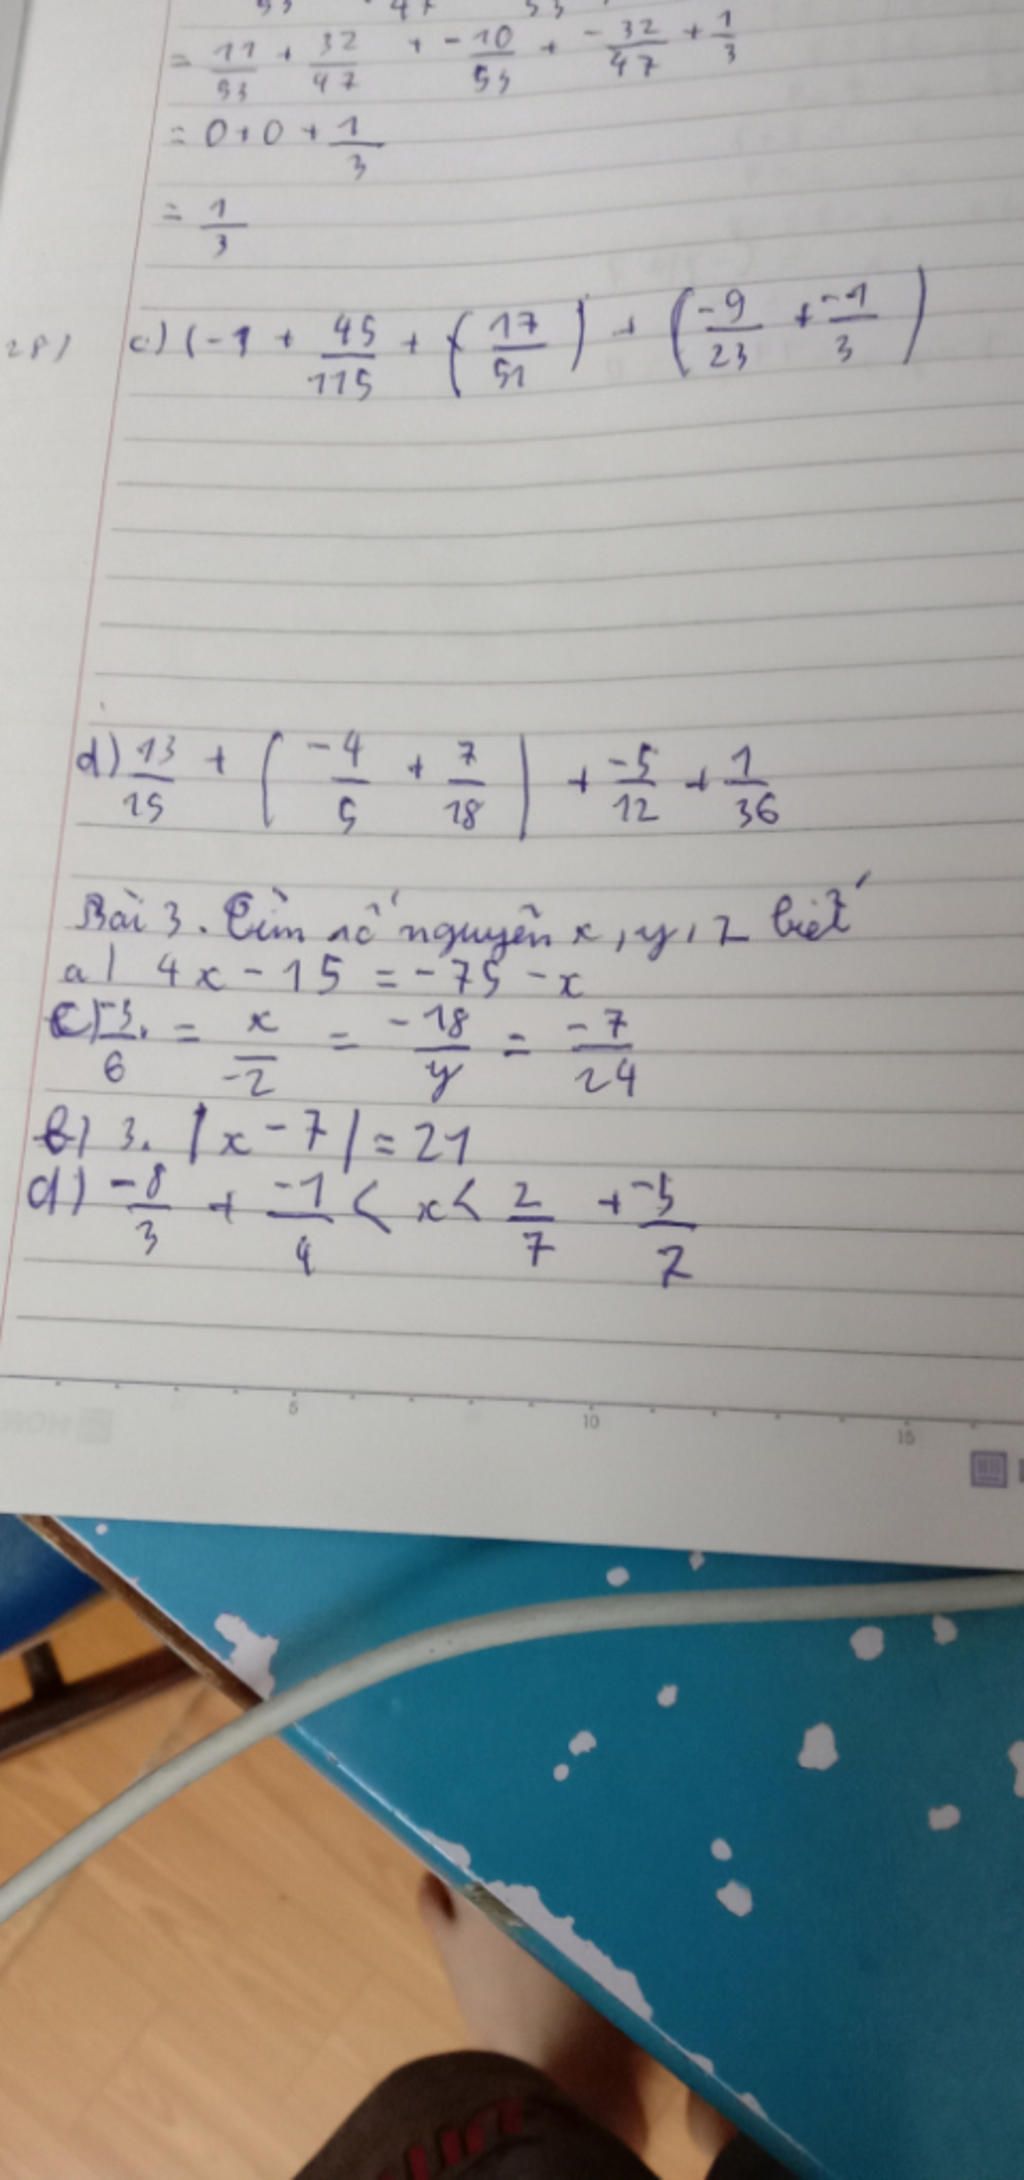 = 11/53 + 32/47 + -10/53 + -32/47 + 1/3
= 0 + 0 + 1/3
= 1/3
28) c) (-1 + 45/115 + (17/51) + (-9/23 + -1/3)
d) 13/15 + (-4/5 + 7/18) + -5/12 + 1/36
Bài 3. Tìm số nguyên x, y, z biết
a) 4x - 15 = -75 - x
c) -3/6 = x/-2 = -18/y = -7/24
b) 3. |x - 7| = 21
d) -8/3 + -1/4 < x < 2/7 + -5/7
5 10 15